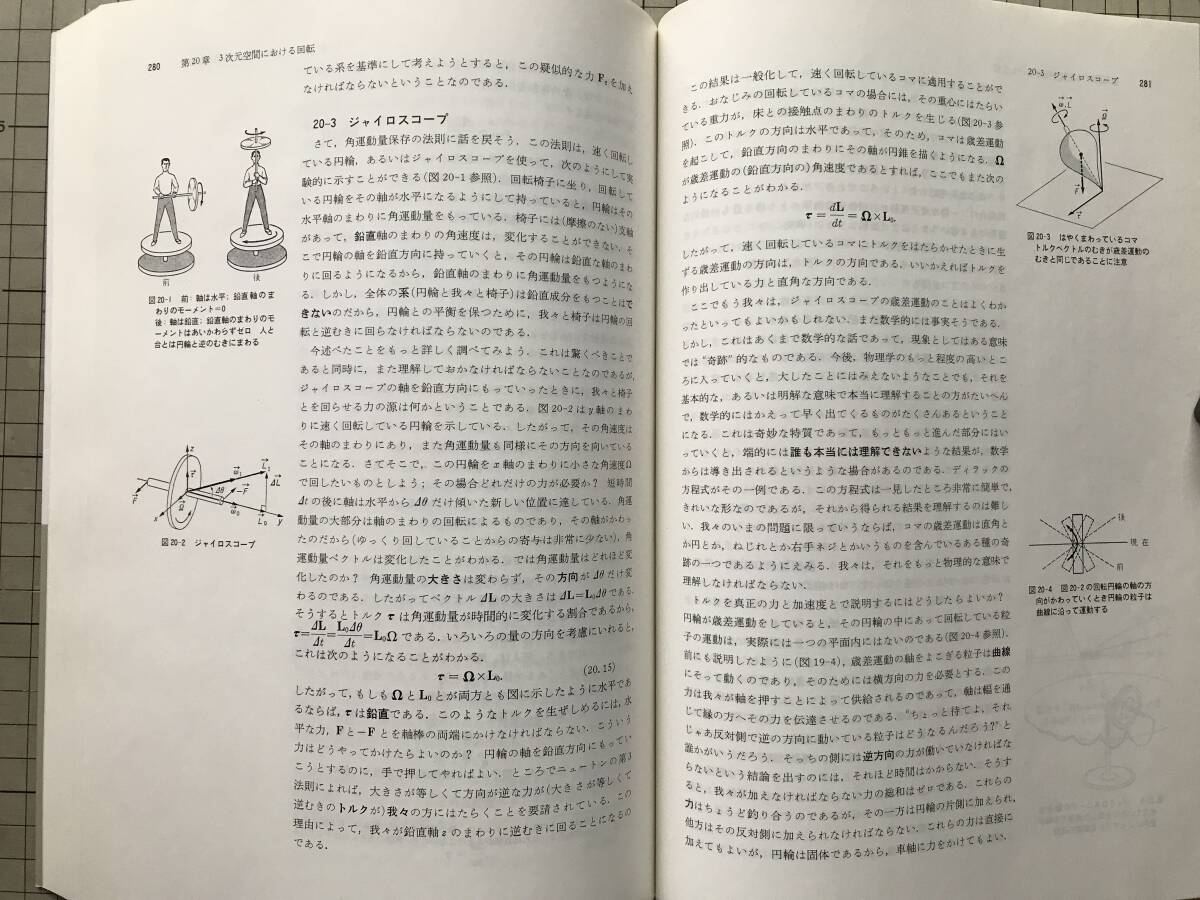 280
第20章 3次元空間における回転
ている系を基準にして考えようとすると，この疑似的な力 F₂ を加え
なければならないということなのである．
20-3 ジャイロスコープ
さて，角運動量保存の法則に話を戻そう．この法則は，速く回転し
ている円輪，あるいはジャイロスコープを使って，次のようにして実
験的に示すことができる(図20-1参照)．回転椅子に坐り，回転して
いる円輪をその軸が水平になるようにして持っていると，円輪はその
水平軸のまわりに角運動量をもっている．椅子には(摩擦のない)支軸
があって，鉛直軸のまわりの角速度は，変化することができない．そ
こで円輪の軸を鉛直方向に持っていくと，その円輪は鉛直な軸のまわ
りに回るようになるから，鉛直軸のまわりに角運動量をもつようにな
る．しかし，全体の系(円輪と我々と椅子)は鉛直成分をもつことはで
きないのだから，円輪との平衡を保つために，我々と椅子は円輪の回
転と逆むきに回らなければならないのである．
今述べたことをもっと詳しく調べてみよう．これは驚くべきことで
あると同時に，また理解しておかなければならないことなのであるが，
ジャイロスコープの軸を鉛直方向にもっていったときに，我々と椅子
とを回らせる力の源は何かということである．図20-2は y 軸のまわ
りに速く回転している円輪を示している．したがって，その角速度は
その軸のまわりにあり，また角運動量も同様にその方向を向いている
ことになる．さてそこで，この円輪を x 軸のまわりに小さな角速度Ω
で回したいものとしよう；その場合どれだけの力が必要か？ 短時間
Δt の後に軸は水平から Δθ だけ傾いた新しい位置に達している．角運
動量の大部分は軸のまわりの回転によるものであり，その軸がかわっ
たのだから(ゆっくり回していることからの寄与は非常に少ない)，角
運動量ベクトルは変化したことがわかる．では角運動量はどれほど変
化したのか？ 角運動量の大きさは変わらず，その方向が Δθ だけ変
わるのである．したがってベクトル ΔL の大きさは ΔL=L₀Δθ である．
そうするとトルク τ は角運動量が時間的に変化する割合であるから，
τ=ΔL/Δt=L₀Δθ/Δt=L₀Ω である．いろいろの量の方向を考慮にいれると，
これは次のようになることがわかる．
τ = Ω×L₀. (20.15)
したがって，もしも Ω と L₀ とが両方とも図に示したように水平であ
るならば，τ は鉛直である．このようなトルクを生ぜしめるには，水
平な力，F と −F とを軸棒の両端にかけなければならない．こういう
力はどうやってかけたらよいのか？ 円輪の軸を鉛直方向にもってい
こうとするのに，手で押してやればよい．ところでニュートンの第3
法則によれば，大きさが等しくて方向が逆な力が(大きさが等しくて
逆むきのトルクが)我々の方にはたらくことを要請されている．この
理由によって，我々が鉛直軸 z のまわりに逆むきに回ることになるの
である．
前
後
図20-1 前：軸は水平；鉛直軸のま
わりのモーメント=0
後：軸は鉛直；鉛直軸のまわりのモ
ーメントはあいかわらずゼロ 人と
台とは円輪と逆のむきにまわる
z
τ
F
x
Ω
Δθ
ω₁
L₁
ΔL
−F
ω₀
L₀
y
図20-2 ジャイロスコープ
20-3 ジャイロスコープ
281
この結果は一般化して，速く回転しているコマに適用することがで
きる．おなじみの回転しているコマの場合には，その重心にはたらい
ている重力が，床との接触点のまわりのトルクを生じる(図20-3参
照)．このトルクの方向は水平であって，そのため，コマは歳差運動
を起こして，鉛直方向のまわりにその軸が円錐を描くようになる．Ω
が歳差運動の(鉛直方向の)角速度であるとすれば，ここでもまた次の
ようになることがわかる．
τ = dL/dt = Ω×L₀.
したがって，速く回転しているコマにトルクをはたらかせたときに生
ずる歳差運動の方向は，トルクの方向である．いいかえればトルクを
作り出している力と直角な方向である．
ここでもう我々は，ジャイロスコープの歳差運動のことはよくわか
ったといってもよいかもしれない．また数学的には事実そうである．
しかし，これはあくまで数学的な話であって，現象としてはある意味
では“奇跡”的なものである．今後，物理学のもっと程度の高いとこ
ろに入っていくと，大したことにはみえないようなことでも，それを
基本的な，あるいは明解な意味で本当に理解することの方がたいへん
で，数学的にはかえって早く出てくるものがたくさんあるということ
になる．これは奇妙な特質であって，もっともっと進んだ部分にはい
っていくと，端的には誰も本当には理解できないような結果が，数学
からは導き出されるというような場合があるのである．ディラックの
方程式がその一例である．この方程式は一見したところ非常に簡単で，
きれいな形なのであるが，それから得られる結果を理解するのは難し
い．我々のいまの問題に限っていうならば，コマの歳差運動は直角と
か円とか，ねじれとか右手ネジとかいうものを含んでいるある種の奇
跡の一つであるようにえみる．我々は，それをもっと物理的な意味で
理解しなければならない．
トルクを真正の力と加速度とで説明するにはどうしたらよいか？
円輪が歳差運動をしていると，その円輪の中にあって回転している粒
子の運動は，実際には一つの平面内にはないのである(図20-4参照)．
前にも説明したように(図19-4)，歳差運動の軸をよこぎる粒子は曲線
にそって動くのであり，そのためには横方向の力を必要とする．この
力は我々が軸を押すことによって供給されるのであって，軸は輻を通
じて縁の方へその力を伝達させるのである．“ちょっと待てよ，それ
じゃあ反対側で逆の方向に動いている粒子はどうなるんだろう?”と
誰かがいうだろう．そっちの側には逆方向の力が働いていなければな
らないという結論を出すのには，それほど時間はかからない．そうす
ると，我々が加えなければならない力の総和はゼロである．これらの
力はちょうど釣り合うのであるが，その一方は円輪の片側に加えられ，
他方はその反対側に加えられなければならない．これらの力は直接に
加えてもよいが，円輪は固体であるから，車軸に力をかけてもよい．
ω, L
Ω
r
τ
図20-3 はやくまわっているコマ
トルクベクトルのむきが歳差運動の
むきと同じであることに注意
後
現在
前
図20-4 図20-2の回転円輪の軸の方
向がかわっていくとき円輪の粒子は
曲線に沿って運動する